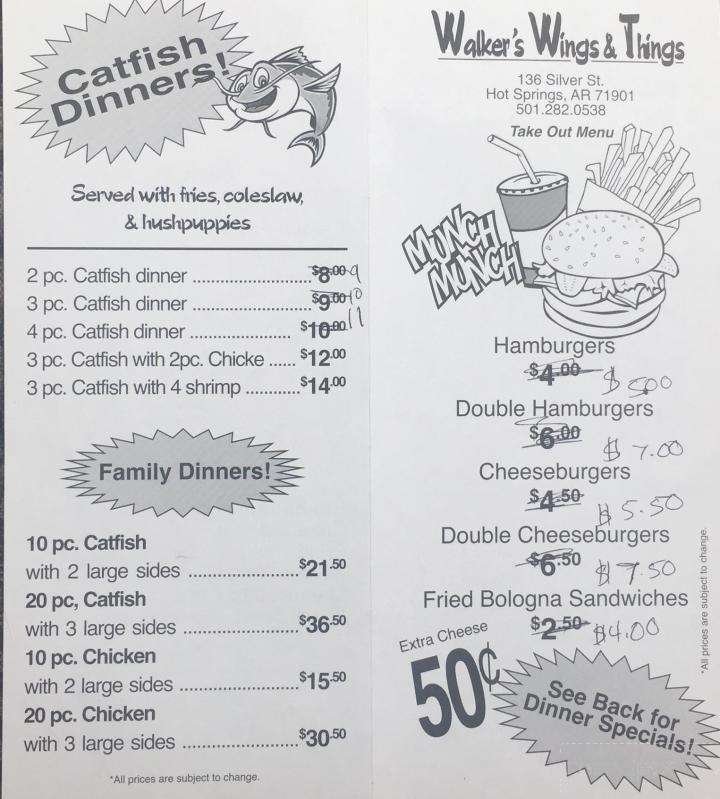 Catfish
Dinners!
Served with fries, coleslaw,
& hushpuppies
2 pc. Catfish dinner ........................ $8.00 9
3 pc. Catfish dinner ........................ $9.00 10
4 pc. Catfish dinner .................... $10.00 11
3 pc. Catfish with 2pc. Chicke ...... $12.00
3 pc. Catfish with 4 shrimp ............ $14.00
Family Dinners!
10 pc. Catfish
with 2 large sides ........................ $21.50
20 pc, Catfish
with 3 large sides .......................... $36.50
10 pc. Chicken
with 2 large sides .......................... $15.50
20 pc. Chicken
with 3 large sides .......................... $30.50
*All prices are subject to change.
Walker's Wings & Things
136 Silver St.
Hot Springs, AR 71901
501.282.0538
Take Out Menu
MUNCH
MUNCH
Hamburgers
$4.00 $5.00
Double Hamburgers
$6.00 $7.00
Cheeseburgers
$4.50 $5.50
Double Cheeseburgers
$6.50 $7.50
Fried Bologna Sandwiches
$2.50 $4.00
Extra Cheese
50¢
See Back for
Dinner Specials!
*All prices are subject to change.